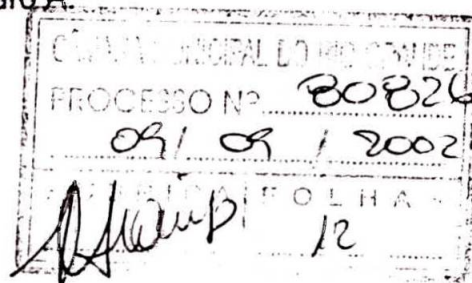 CÂMARA MUNICIPAL DO RIO GRANDE
PROCESSO Nº 80826
09 / 09 / 2002
RUBRICA FOLHA
12